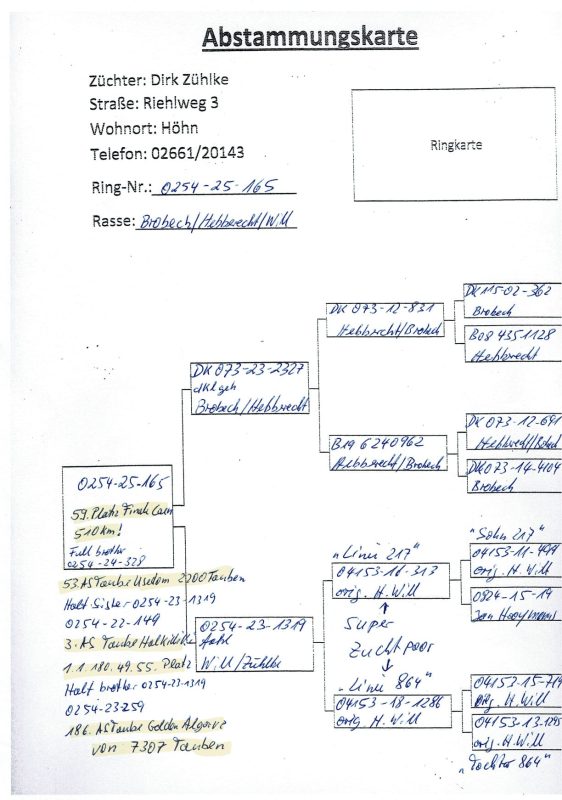 Abstammungskarte
Züchter: Dirk Zühlke
Straße: Riehlweg 3
Wohnort: Höhn
Telefon: 02661/20143
Ring-Nr.: 0254-25-165
Rasse: Brobech/Hebbrecht/Will
Ringkarte
DK 115-02-362
Brobech
B08 4351128
Hebbrecht
DK 073-12-831
Hebbrecht/Brobech
DK 073-23-2327
dklgeh
Brobech/Hebbrecht
DK 073-12-691
Hebbrecht/Brobech
DK 073-14-4104
Brobech
B19 6240962
Hebbrecht/Brobech
0254-25-165
59. Platz Finale Caen
510 km!
Full brother
0254-24-328
53. AS Taube Usedom 2200 Tauben
Halt Sister 0254-23-1319
0254-22-149
3. AS Taube
1. 1. 180. 49. 55. Platz
Halt brother 0254-23-1319
0254-23259
186. AS Taube Golden Algarve
von 7307 Tauben
0254-23-1319
Will/Zühlke
"Linie 217"
04153-16-313
orig. H. Will
Super
Zuchtpaar
"Linie 864"
04153-18-1286
orig. H. Will
"Sohn 217"
04153-11-499
orig. H. Will
0924-15-19
Jan Hooymans
04153-15-719
orig. H. Will
04153-13-1295
orig. H. Will
"Tochter 864"